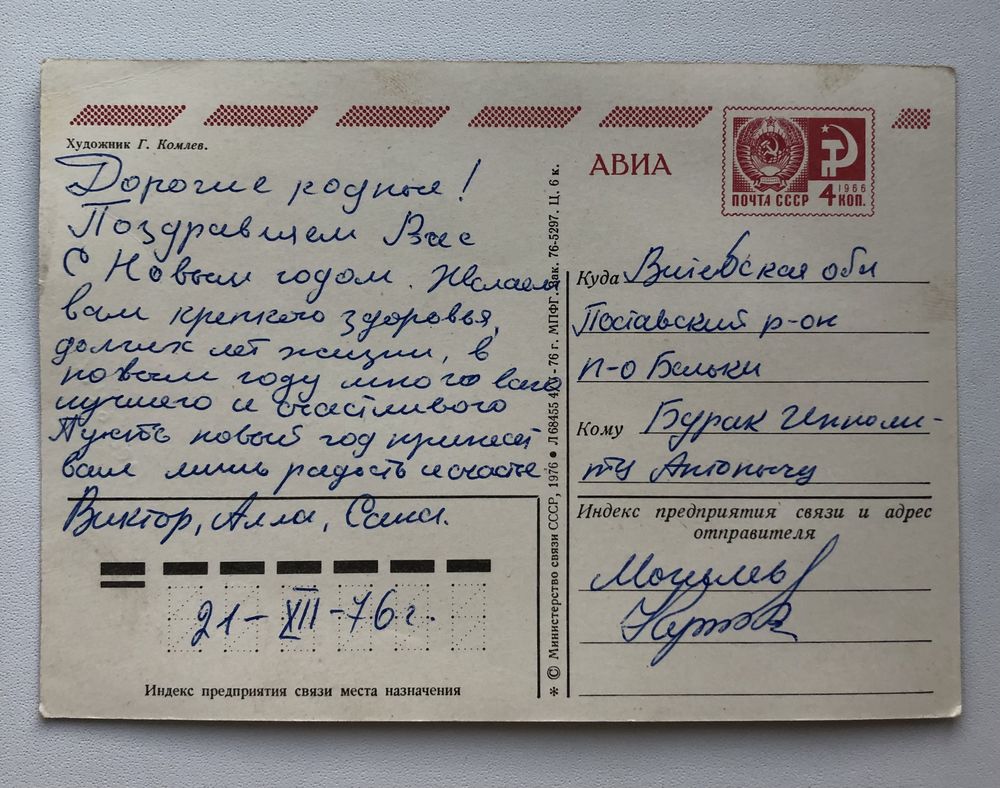 Художник Г. Комлев.
Дорогие родные!
Поздравляем Вас
С Новым годом. Желаем
вам крепкого здоровья,
долгих лет жизни, в
новым году много
лучшего и счастливого
Пусть новый год принесёт
вам лишь радость и счастье
Виктор, Алла, Саша.
21-XII-76 г.
Индекс предприятия связи места назначения
* © Министерство связи СССР, 1976 ● Л 68455 76 г. МПФГ. Зак. 76-5297. Ц. 6 к.
АВИА
ПОЧТА СССР 1966 4 КОП.
Куда Витебская обл
Поставский р-он
п-о Бальки
Кому Бурак Ипполи-
ту Антонычу
Индекс предприятия связи и адрес
отправителя
Могилев